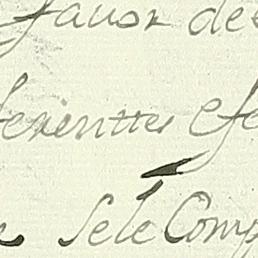 favor de
ferenttes efe
Sele Comp